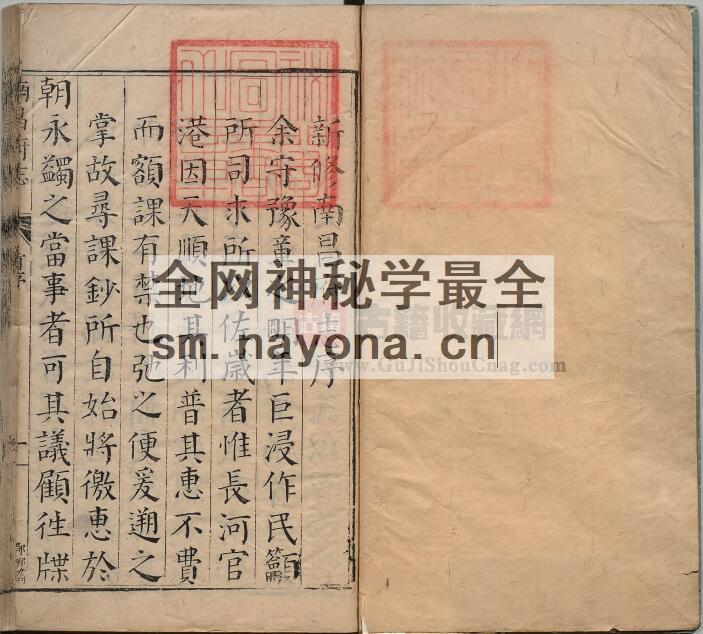 新修南昌府志序
余守豫章之明年巨浸作民籲
所司求所以佐歲者惟長河官
港因天順地其利普其惠不費
而額課有禁也弛之便爰遡之
掌故尋課鈔所自始將徼惠於
朝永蠲之當事者可其議顧徃牒
南昌府志
首序
一
全网神秘学最全
sm.nayona.cn
古籍收藏網
www.GuJiShouCnag.com